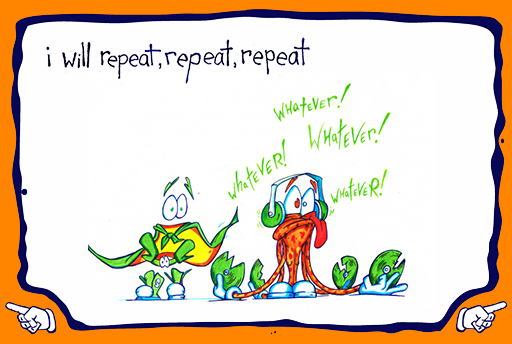 i will repeat, repeat, repeat
whatever!
whatever!
whatever!
whatever!